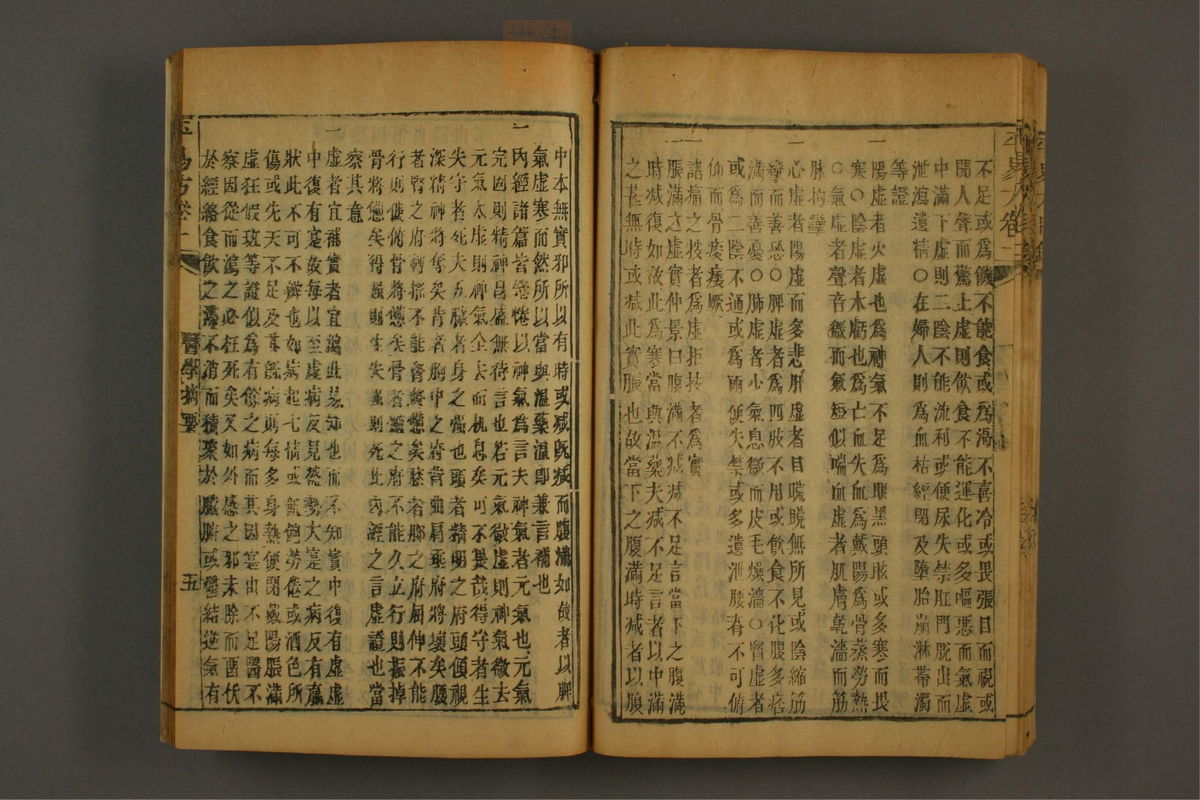 不足或爲饑不能食或爲渴不喜冷或畏張目而視或
聞人聲而驚上虛則飲食不能運化或多嘔惡而氣虛
中滿下虛則二陰不能流利或便尿失禁肛門脫出而
泄瀉遺精○在婦人則爲血枯經閉及墮胎崩淋帶濁
等證
一陽虛者火虛也爲神氣不足爲眼黑頭眩或多寒而畏
寒○陰虛者水虧也爲亡血失血爲戴陽爲骨蒸勞熱
○氣虛者聲音微而氣短似喘血虛者肌膚乾澀而筋
脉拘攣
一心虛者陽虛而多悲肝虛者目䀮䀮無所見或陰縮筋
攣而善恐○脾虛者爲四肢不用或飲食不化腹多痞
滿而善憂○肺虛者心氣息微而皮毛燥澀○腎虛者
或爲二陰不通或爲兩便失禁或多遺泄腰脊不可俯
仰而骨痠痿厥
一諸痛之按者爲虛拒按者爲實
一脹滿之虛實仲景曰腹滿不減減不足言當下之腹滿
時減復如故此爲寒當與溫藥夫減不足言者以中滿
之甚無時或減此實脹也故當下之腹滿時減者以腹
中本無實邪所以有時或减旣减而腹滿如故者以脾
氣虛寒而然所以當與溫藥溫卽兼言補也
一內經諸篇皆惓惓以神氣爲言夫神氣者元氣也元氣
完固則精神昌盛無待言也若元氣微虛則神氣微去
元氣太虛則神氣全去而机息矣可不畏哉得守者生
失守者死夫五臟者身之强也頭者精明之府頭傾視
深精神將奪矣背者胸中之府背曲肩垂府將壞矣腰
者腎之府轉搖不能腎將憊矣膝者筋之府屈伸不能
行則僂俯骨將憊矣骨者髓之府不能久立行則振掉
骨將憊矣得强則生失强則死此內經之言虛證也當
察其意
一虛者宜補實者宜瀉此易知也而不知實中復有虛虛
中復有實故每以至虛病反見盛勢大實之病反有羸
狀此不可不辨也如病起七情或飢飽勞倦或酒色所
傷或先天不足及其旣病則每多身熱便閉戴陽脹滿
虛狂假斑等證似爲有餘之病而其因實由不足醫不
察因從而瀉之必枉死矣又如外感之邪未除而畱伏
於經絡食飲之滯不消而積聚於臟腑或鬱結逆氣有
卷一
醫學摘要
五